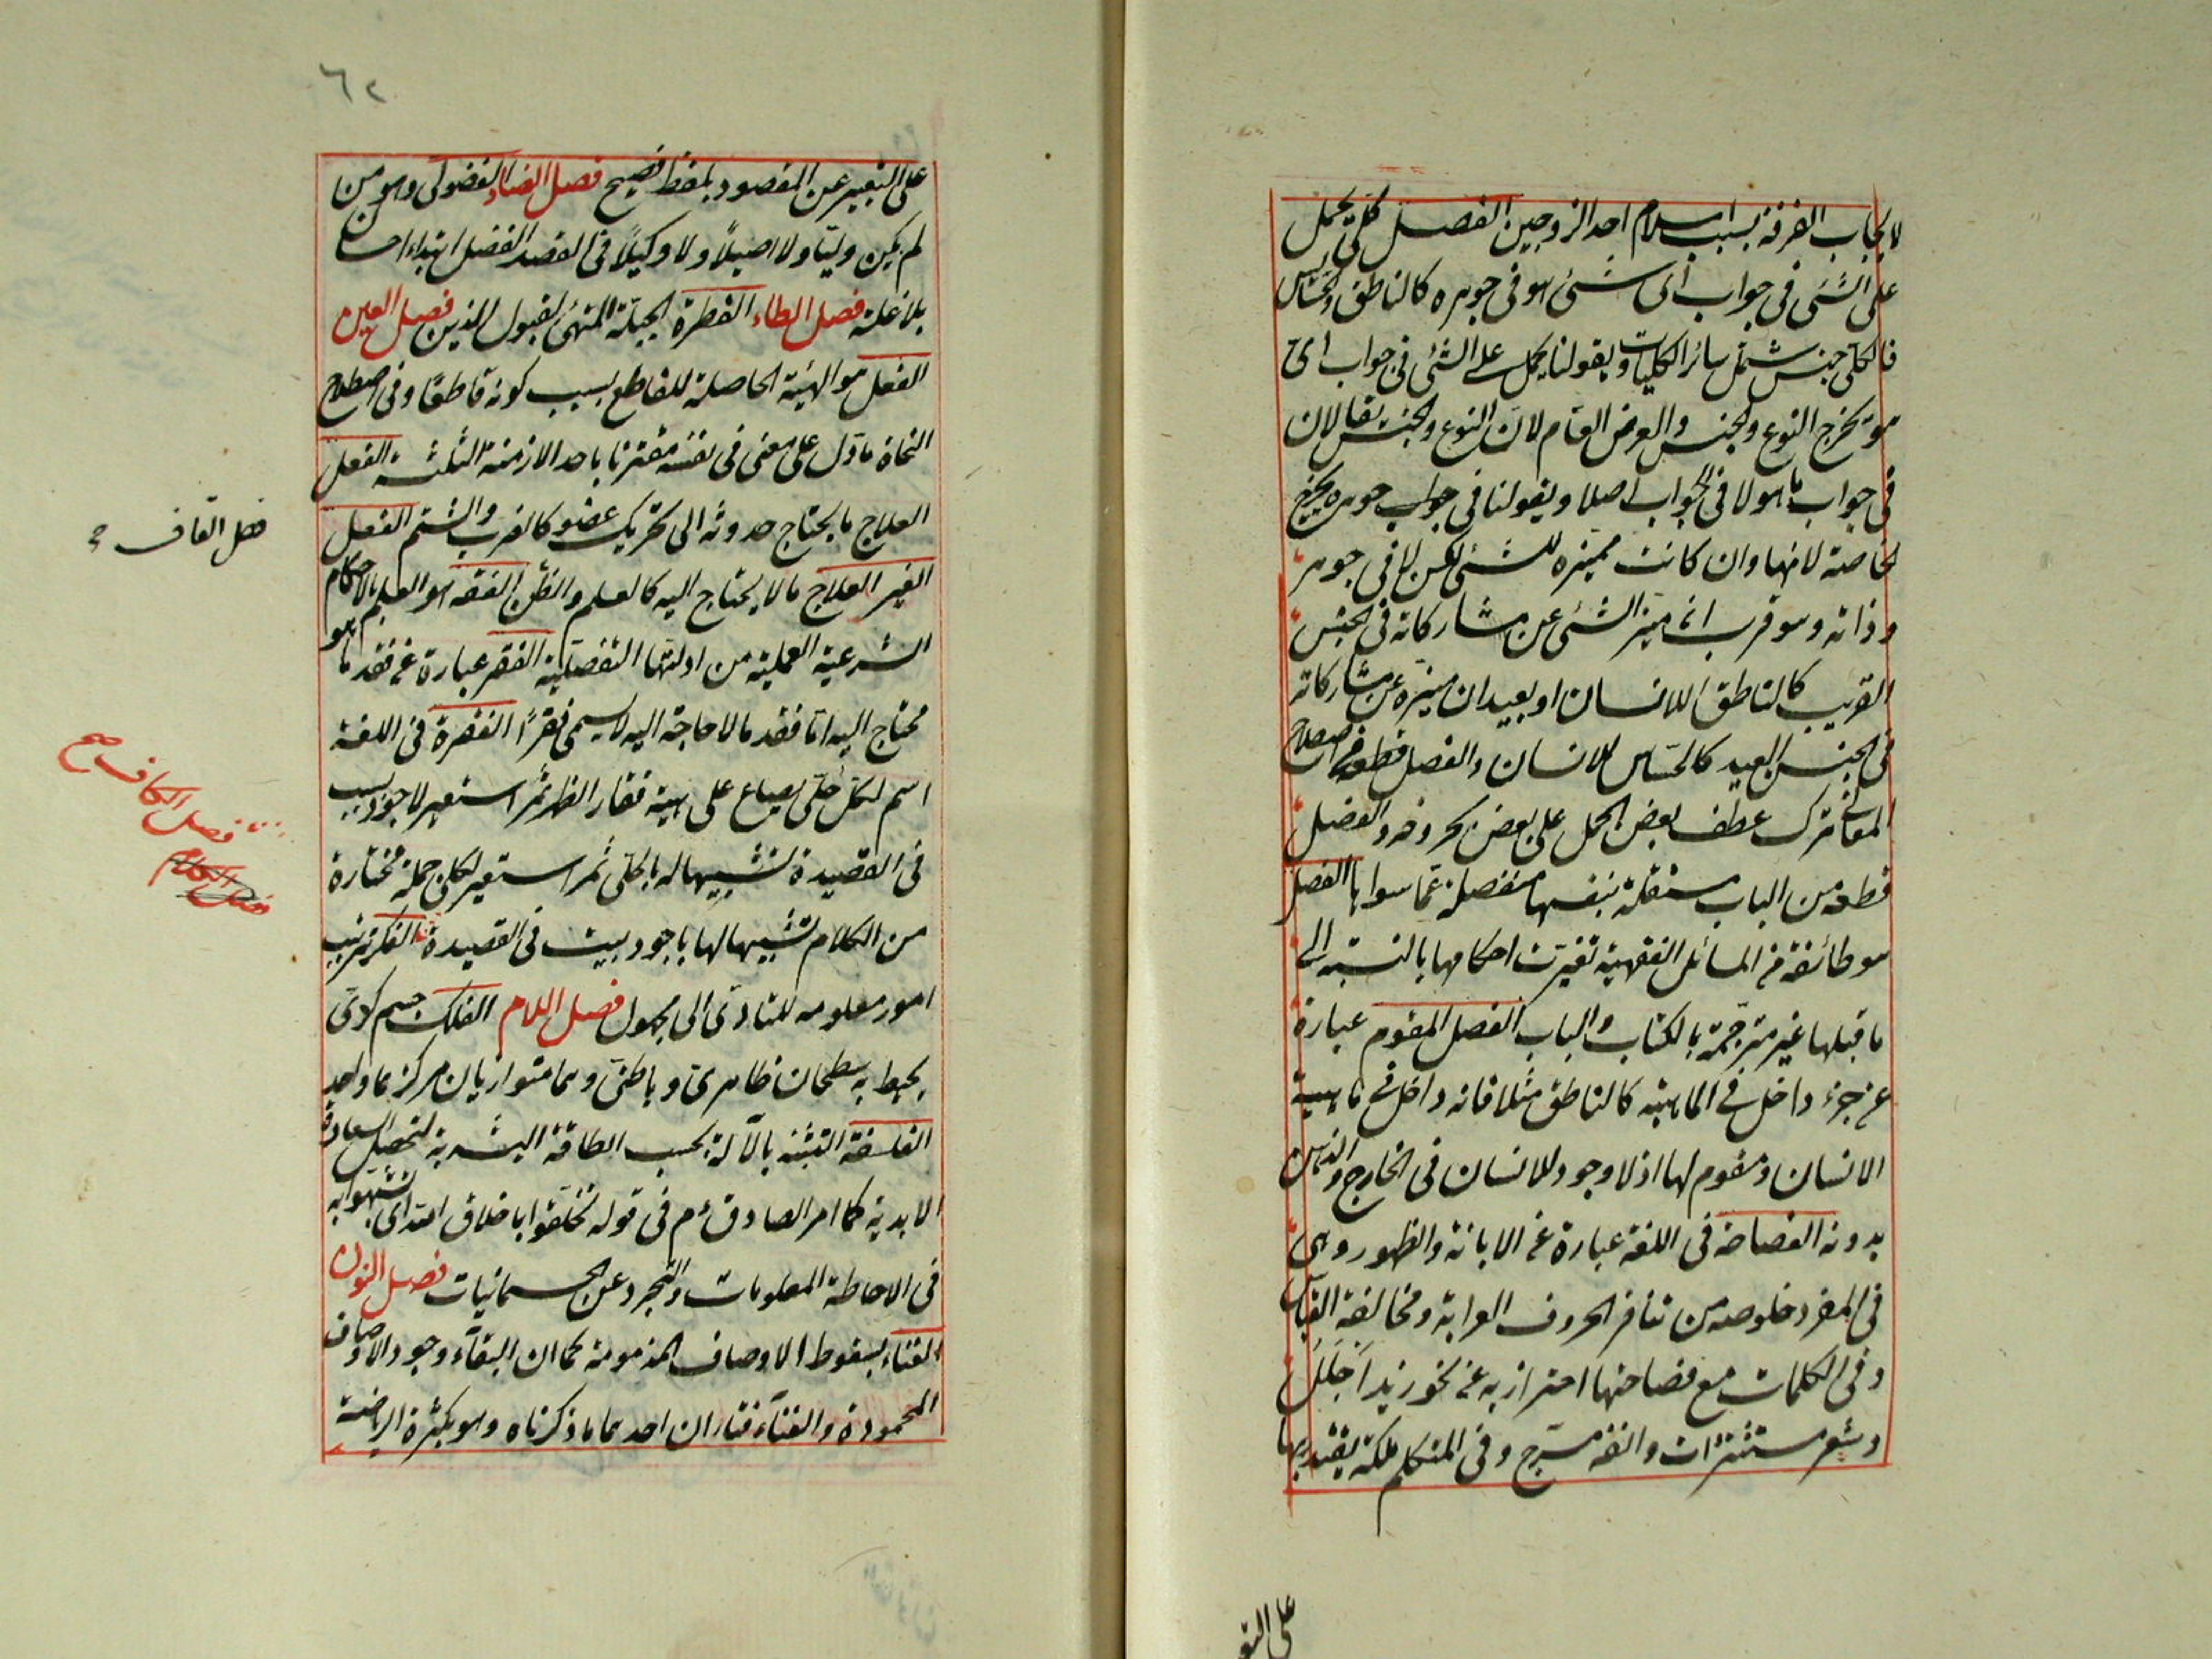 لايجاب الفرقة بسبب اسلام احد الزوجين الفصل كلى يحمل
على الشئ فى جواب اى شئ هو فى جوهره كالناطق والحساس
فالكلى جنس يشمل سائر الكليات وبقولنا يحمل على الشئ فى جواب اى
هو يخرج النوع والجنس والعرض العام لان النوع والجنس يقالان
فى جواب ما هو لا فى الجواب اصلا وبقولنا فى جواب جوهره يخرج
الخاصة لانها وان كانت مميزة للشئ لكن لا فى جوهر
وذاته وهو قريب ان ميز الشئ عن مشاركاته فى الجنس
القريب كالناطق للانسان او بعيد ان ميزه عن مشاركاته
فى الجنس البعيد كالحساس للانسان والفصل فى اصطلاح
المعانى ترك عطف بعض الجمل على بعض بحروفه والفصل
قطعة من الباب مستقلة بنفسها منفصلة عما سواها الفصل
هو طائفة من المسائل الفقهية تغيرت احكامها بالنسبة الى
ما قبلها غير مترجمة بالكتاب والباب الفصل المقوم عبارة
عن جزء داخل فى الماهية كالناطق مثلا فانه داخل فى ماهية
الانسان ومقوم لها اذ لا وجود للانسان فى الخارج والذهن
بدونه الفصاحة فى اللغة عبارة عن الابانة والظهور وهى
فى المفرد خلوصه من تنافر الحروف الغرابة ومخالفة القياس
وفى الكلمات مع فصاحتها احترازبه عن نحو زيد اجلل
وشعر مستشزرات وانفه مسرج وفى المتكلم ملكة يقتدر بها
على التع
٦٢
على التعبير عن المقصود بلفظ فصيح فصل الضاد الفضولى وهو من
لم يكن وليا ولا اصيلاً ولا وكيلاً فى العقد الفضل ابتداء احسا
بلا علة فصل الطاء الفطرة الجبلة المتهئ لقبول الدين فصل العين
الفعل هو الهيئة الحاصلة للقاطع بسبب كونه قاطعا وفى اصطلاح
النحاة ما دل على معنى فى نفسه مقترنا باحد الازمنة الثلثة الفعل
العلاج ما يحتاج حدوثه الى تحريك عضو كالضرب والشتم الفعل
الغير العلاج ما لا يحتاج اليه كالعلم والظن الفقه هو العلم بالاحكام
الشرعية العملية من ادلتها التفصلية الفقر عبارة عن فقد ما هو
محتاج اليه اما فقد ما لا حاجة اليه لا يسمى فقرًا الفقرة فى اللغة
اسم لكل حلى يصاع على هيئة فقار الظهر ثم استعير لاجود بيت
فى القصيدة تشبيها له بالحلى ثم استعير لكل جملة مختارة
من الكلام تشبيها لها باجود بيت فى القصيدة الفكر ترتيب
امور معلومه للتادى الى مجهول فصل اللام الفلك جسم كرى
يحيط به سطحان ظاهرى وباطنى وهما متوازيان مركزهما واحد
الفلسفة التشبه بالآلة بحسب الطاقة البشرية لتحصيل السعادة
الابدية كما امر الصادق ءم فى قوله تخلقوا باخلاق الله اى تشبهوا به
فى الاحاطة المعلومات والتجرد عن الجسمانيات فصل النون
الفناء سقوط الاوصاف المذمومة كما ان البقاء وجود الاوصاف
المحمودة والفناء فناءان احدهما ما ذكرناه وهو بكثرة الرياضة
فصل القاف
فصل الكاف صح